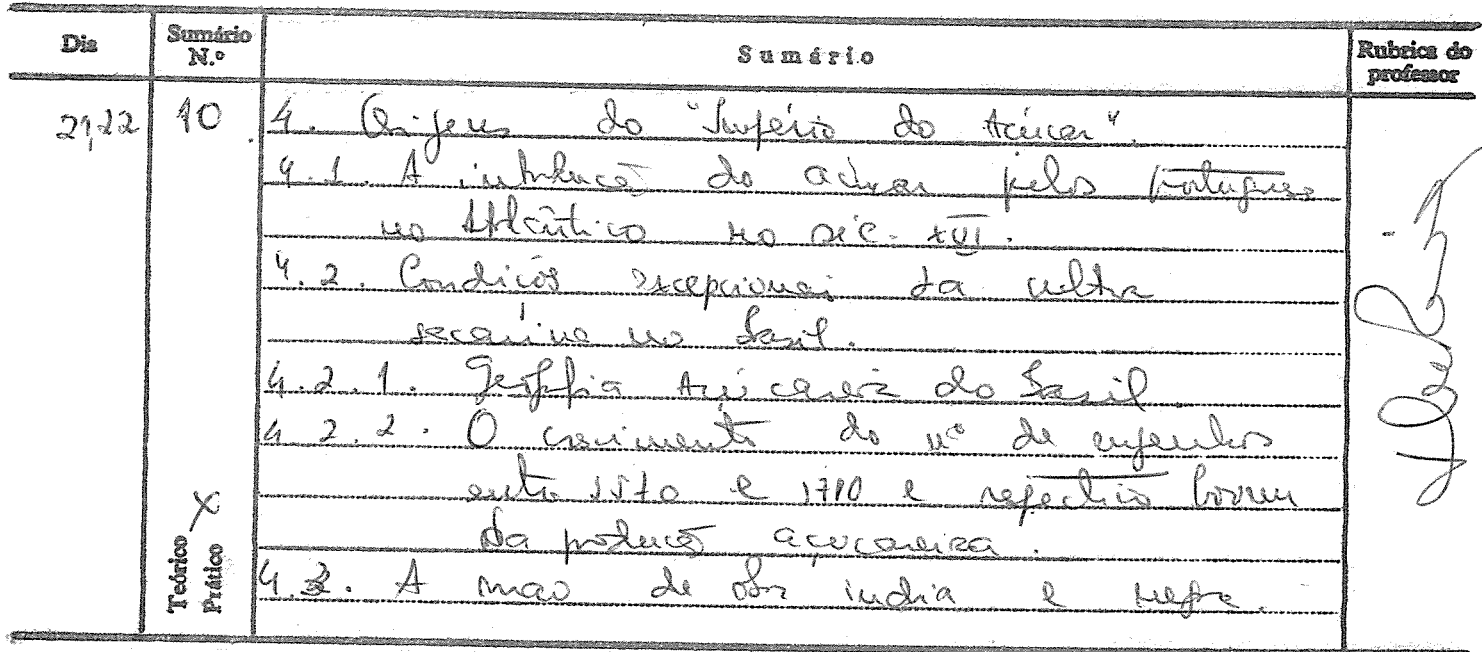 Dia
Sumário N.º
Sumário
Rubrica do professor
21,22 10 4. Origens do "Império do Açúcar".
4.1. A introdução do açúcar pelos portugueses
no Atlântico no séc. XVI.
4.2. Condições excepcionais da cultura
sacarina no Brasil.
4.2.1. Geografia Açucareira do Brasil.
4.2.2. O crescimento do nº de engenhos
entre 1570 e 1710 e respectivo boom
da produção açucareira.
4.3. A mão de obra índia e negra.
Teórico X
Prático